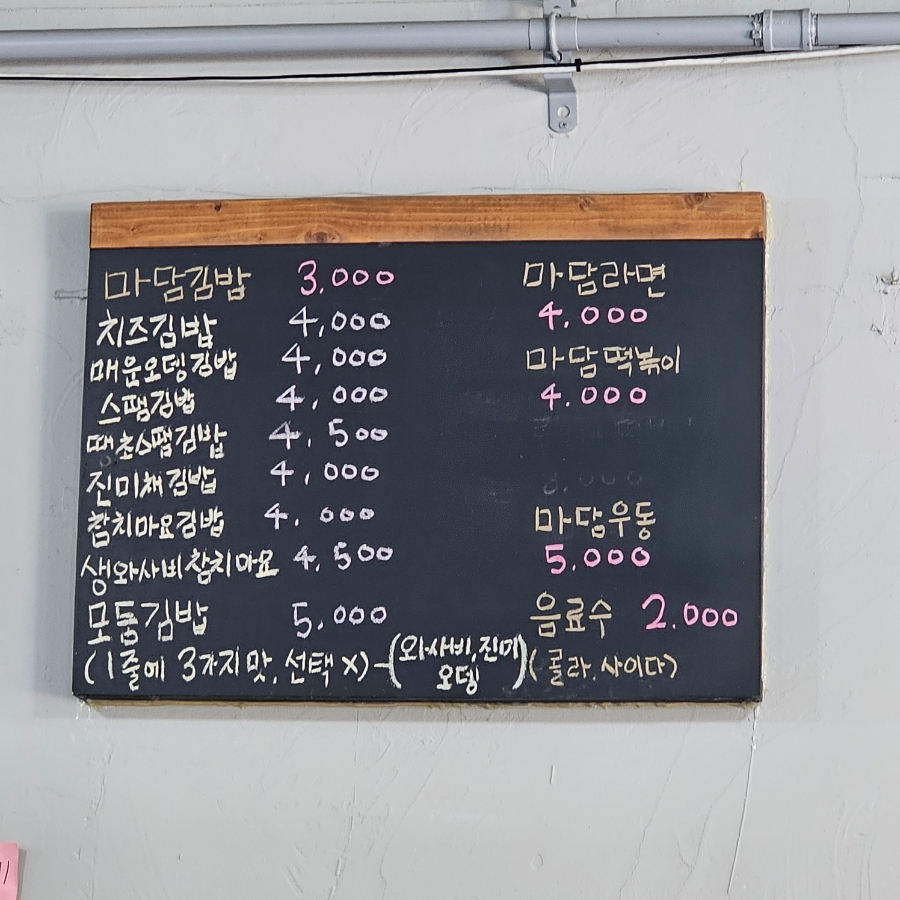 마담김밥 3,000
치즈김밥 4,000
매운오뎅김밥 4,000
스팸김밥 4,000
땡초스팸김밥 4,500
진미채김밥 4,000
참치마요김밥 4,000
생와사비참치마요 4,500
모듬김밥 5,000
(1줄에 3가지맛, 선택 X) - (와사비, 진미 오뎅)
마담라면
4.000
마담떡볶이
4.000
마담우동
5.000
음료수 2.000
(콜라, 사이다)